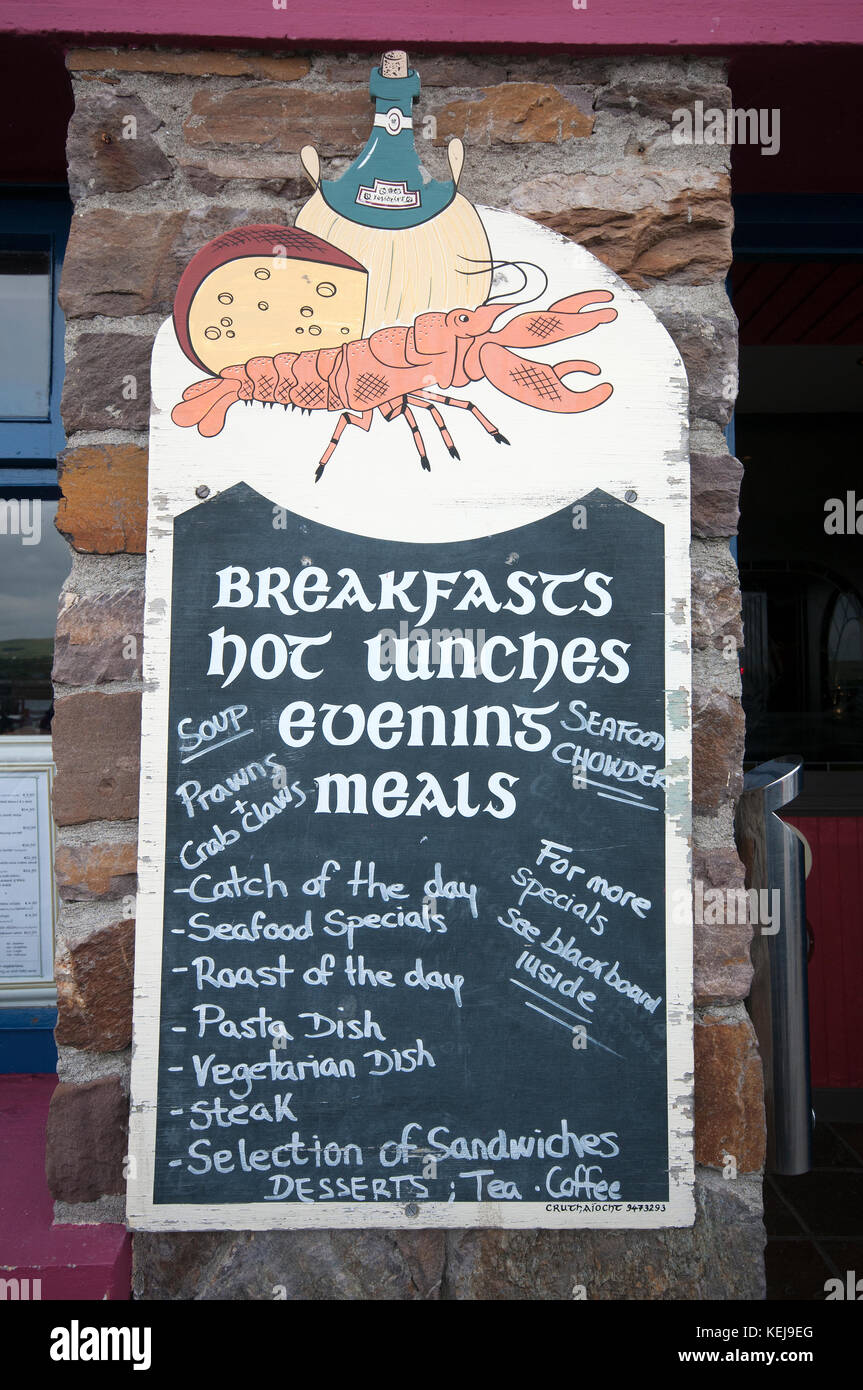 BREAKFASTS
HOT LUNCHES
EVENING
MEALS
SOUP
Prawns
+
Crab Claws
SEAFOOD
CHOWDER
For more
specials
see blackboard
inside
- Catch of the day
- Seafood Specials
- Roast of the day
- Pasta Dish
- Vegetarian Dish
- Steak
- Selection of Sandwiches
DESSERTS ; Tea . Coffee
CRUTHAÍOCHT 9473293
alamy
Image ID: KEJ9EG
www.alamy.com